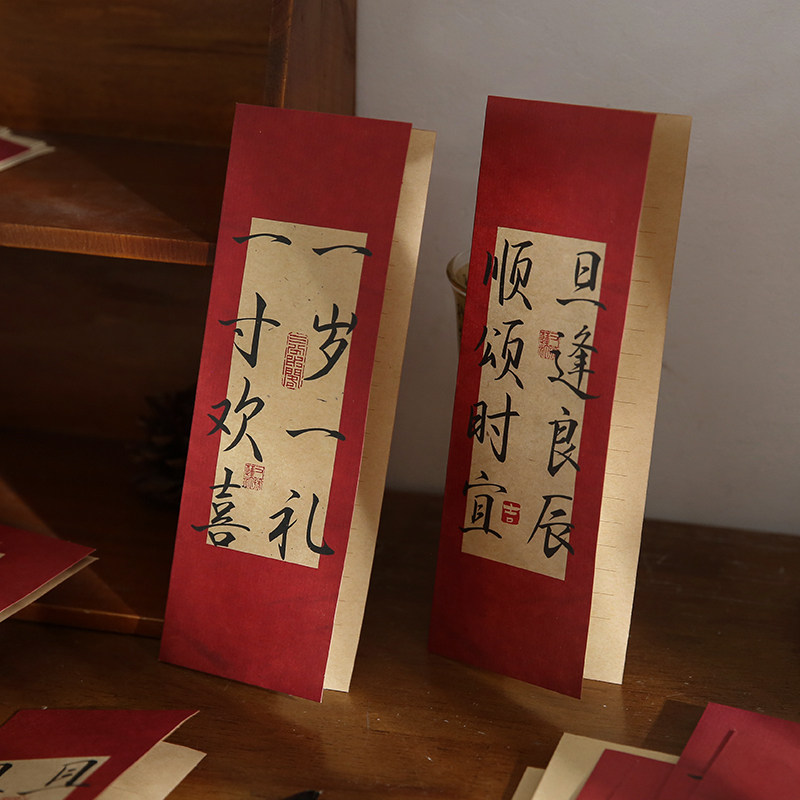 一岁一礼
一寸欢喜
且逢良辰
顺颂时宜
吉
且